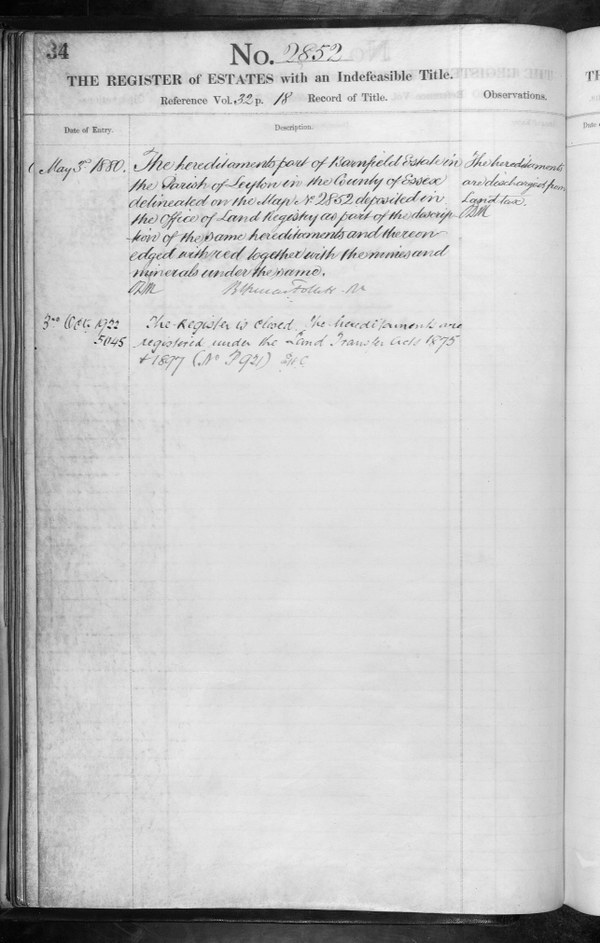 34
No. 2852
THE REGISTER of ESTATES with an Indefeasible Title.
Reference Vol. 32 p. 18 Record of Title.
Observations.
Date of Entry.
Description.
May 3rd 1880.
The hereditaments part of Barnfield Estate in
the Parish of Leyton in the County of Essex
delineated on the Map No 2852 deposited in
the Office of Land Registry as part of the descrip-
tion of the same hereditaments and thereon
edged with red together with the mines and
minerals under the same.
The hereditaments
are discharged from
Land tax.
3rd Oct. 1922
5045
The Register is closed. The hereditaments are
registered under the Land Transfer Acts 1875
& 1897 (No P921)